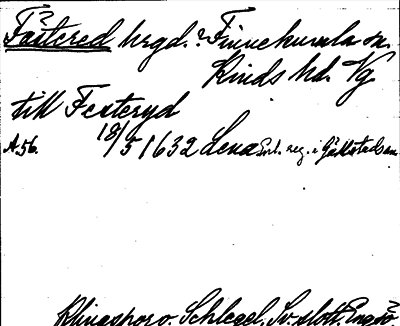 Fästered hrgd. i Finnekumla sn.
Kinds hd. Vg
till Festeryd
A.56. 18/5 1632 Lena Enl. reg. i Gällstads an
Klingspor o. Schlegel, Sv. slott. Engsö